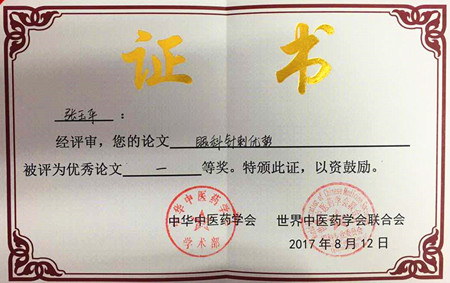 证书
张玉平：
经评审，您的论文眼科针刺优势
被评为优秀论文一等奖。特颁此证，以资鼓励。
中华中医药学会 世界中医药学会联合会
中华中医药学会
学术部
2017年8月12日